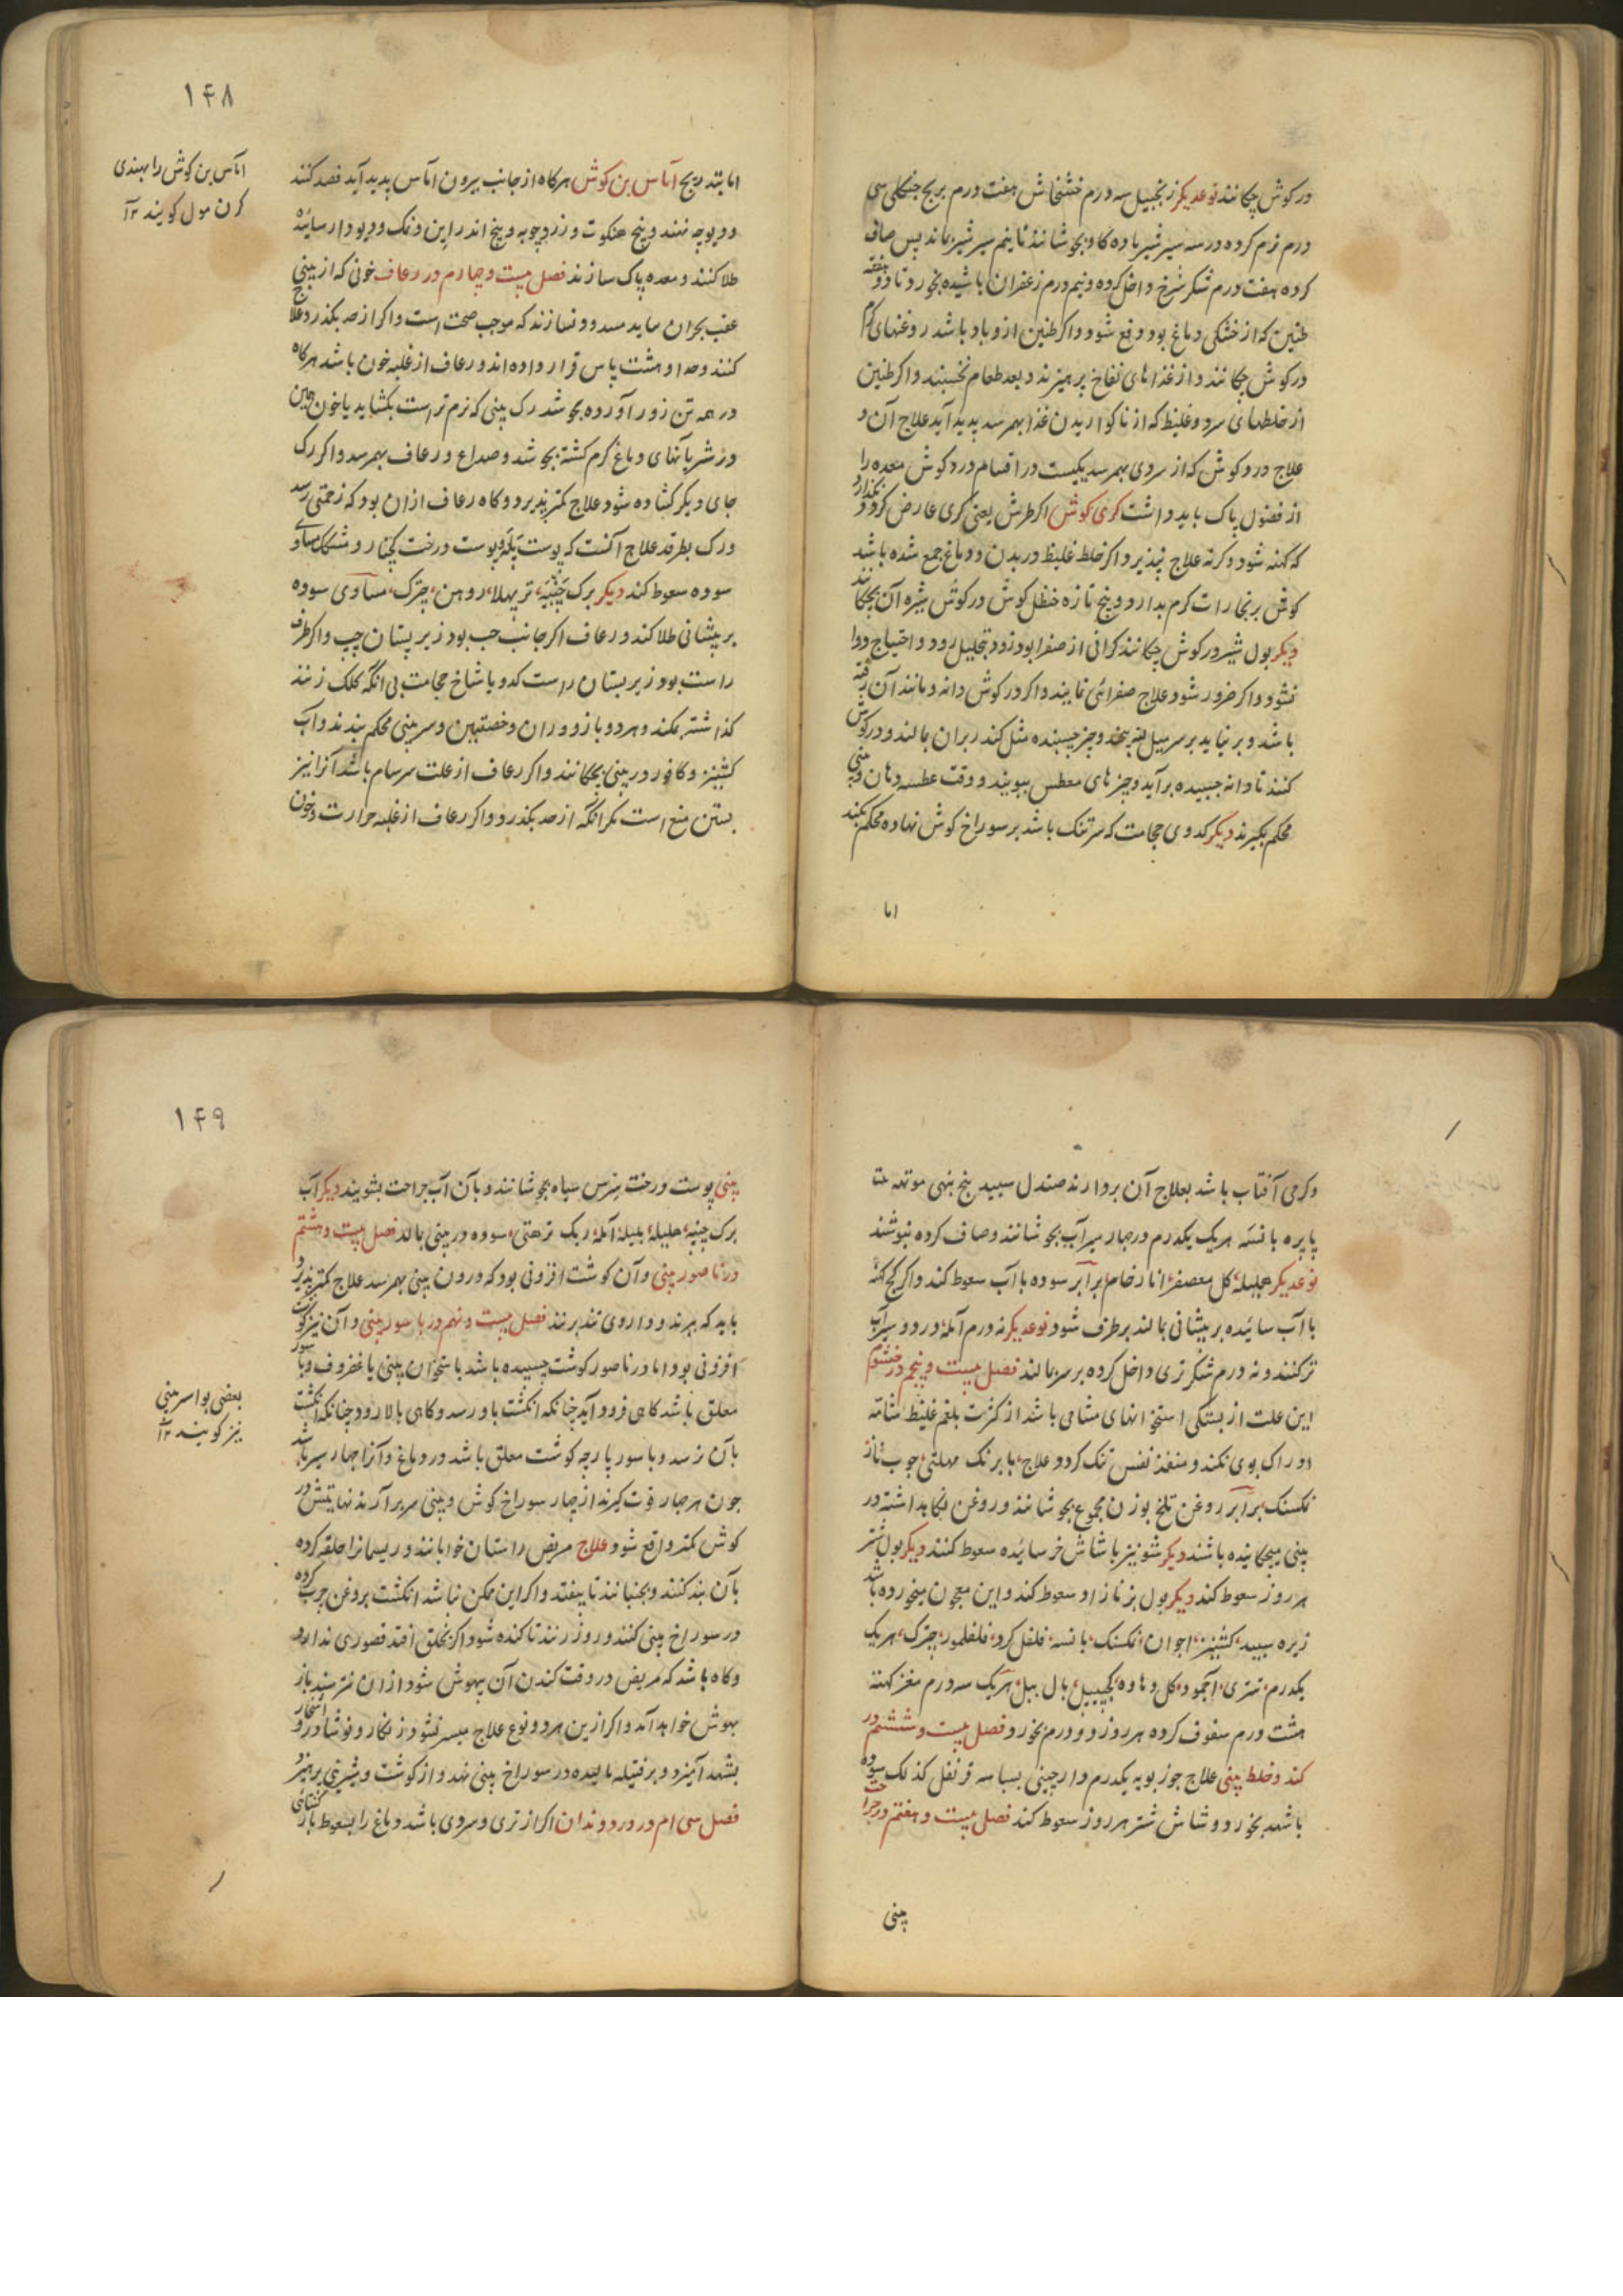 در کوش چکانند نوعدیکر زنجبیل سه درم خشخاش هفت درم برنج جنکلی سی
درم نرم کرده در سه سیر شیر ماده کاو بجوشانند تا نیم سیر شیر بماند پس صاف
کرده هفت درم شکر سُرخ داخل کرده و نیم درم زعفران پاشیده بخورد تا دو هفته
طنین که از خشکی دماغ بود دفع شود و اکر طنین از و باد باشد روغنهای کرم
در کوش چکانند و از غذاهای نفاخ پرهیزند و بعد طعام نخسپند و اکر طنین
از خلطهای سرد و غلیظ که از ناکواریدن غذا بهم رسد پدید آید علاج آن و
علاج درد کوش که از سردی بهم رسد یکیست در اقسام درد کوش معده را
از فضول پاک باید داشت کری کوش اکر طرش یعنی کری عارض کردد نکذارد
که کهنه شود و کرنه علاج نپذیرد اکر خلط غلیظ در بدن و دماغ جمع شده باشد
کوش بر بخارات کرم بدارد و بیخ تازه حنظل کوش در کوش شیره آن بچکانند
دیکر بول شیر در کوش چکانند کرانی از صفرا بود زود بتحلیل رود و احتیاج دوا
نشود و اکر ضرور شود علاج صفرائی نمایند و اکر در کوش دانه و مانند آن رفته
باشد و برنیاید بر سر میل پنبه پیچند و چیز چسبنده مثل کندر بران مالند و در کوش
کنند تا دانه چسپیده برآید و چیزهای معطس ببویند و وقت عطسه دهان و بینی
محکم بکیرند دیکر کدوی حجامت که سر تنک باشد بر سوراخ کوش نهاده محکم بمکند
اما
۱۴۸
اما بتدریج آماس بن کوش هرکاه از جانب بیرون آماس پدید آید فصد کنند
و دیوچه نهند و بیخ هنکوت و زردچوبه و بیخ اندراین و نمک و دیودار سائیده
طلا کنند و معده پاک سازند فصل بیست و چهارم در رعاف خونی که از بینی
عقب بحران بیاید مسدود نسازند که موجب صحت است و اکر از حد بکذرد علاج
کنند و حد او هشت پاس قرار داده اند و رعاف از غلبه خون باشد هرکاه
در همه تن زور آورده بجوشد رک بینی که نرم تر است بکشاید یا خون همین
در شریانهای دماغ کرم کشته بجوشد و صداع و رعاف بهم رسد و اکر رک
جای دیکر کشاده شود علاج کمتر پذیرد و کاه رعاف ازان بود که زحمتی رسد
و رک بطرقد علاج آنست که پوست پَلَهْ و پوست درخت کچنار و شکر مساوی
سوده سعوط کند دیکر برک چَنْبِیَه، تربهلا، روهن، چترک، مساوی سوده
بر پیشانی طلا کند و رعاف اکر جانب چپ بود زیر پستان چپ و اکر طرف
راست بود زیر پستان راست کدو یا شاخ حجامت بی آنکه کلک زنند
کذاشته بمکند و هر دو بازو و ران و خصتین و سر بینی محکم بندند و آب
کشنیز و کافور در بینی بچکانند و اکر رعاف از علت سرسام باشد آنرا نیز
بستن منع است مکر آنکه از حد بکذرد و اکر رعاف از غلبه حرارت و خون
آماس بن کوش را بهندی
کرن مول کویند ۱۲
و کرمی آفتاب باشد بعلاج آن بردارند صندل سپید بیخ بنهی موتهه
پاپره بانسَه هریک یکدرم در چهار سیر آب بجوشانند و صاف کرده بنوشند
نوعدیکر هلیله، کل معصفر، انار خام، برابر سوده با آب سعوط کند و اکر کچ کهنه
با آب سائیده بر پیشانی بمالند برطرف شود نوعدیکر نه درم آمله در دو سیر آب
تر کنند و نه درم شکر تری داخل کرده بر سر بمالند فصل بیست و پنجم در خشم
این علت از بستکی استخوانهای مشامی باشد از کثرت بلغم غلیظ شامّه
ادراک بوی نکند و منفذ نفس تنک کردد علاج، بابرنک مهلتی، چوب تاز
نکسنک، برابر روغن تلخ بوزن مجموع بجوشانند و روغن نکاهداشته در
بینی میچکانیده باشند دیکر شونیز با شاش خر سائیده سعوط کنند دیکر بول شتر
هر روز سعوط کند دیکر بول بز نازاد سعوط کند و این معجون میخورده باشد
زیره سپید، کشنیز، اجوان، نکسنک، بانسه، فلفل کرد، فلفلمور، چترک، هریک
یکدرم، تتری، اجمود، کل دهاوه، کجپیل، بال بیل، هریک سه درم مغز کهته
هشت درم سفوف کرده هر روز دو درم بخورد فصل بیست و ششم در
کند و خلط بینی علاج جوز بویه یکدرم دارچینی بسباسه قرنفل کذلک سوده
با شهد بخورد و شاش شتر هر روز سعوط کند فصل بیست و هفتم در جراحت
بینی
۱۴۹
بینی پوست درخت سرس سیاه بجوشانند و بآن آب جراحت بشویند دیکر آب
برک چنبیه، هلیله، بلیله، آمله، ریک ترهتی، سوده در بینی بمالد فصل بیست و هشتم
در ناصور بینی و آن کوشت افزونی بود که درون بینی بهم رسد علاج کمتر پذیرد
باید که ببرند و داروی تند برنند فصل بیست و نهم در باسور بینی و آن نیز کوشت
افزونی بود اما در ناصور کوشت چسپیده باشد باستخوان بینی یا غضروف و باسور
معلق باشد کاهی فرود آید چنانکه انکشت باو رسد و کاهی بالا رود چنانکه انکشت
بآن نرسد و باسور پارچه کوشت معلق باشد در دماغ و آنرا چهار سر باشد
چون هر چهار قوت کیرند از چهار سوراخ کوش و بینی سر برآرند نهایتش در
کوش کمتر واقع شود علاج مریض را ستان خوابانند و ریسمانرا حلقه کرده
بآن بند کنند و بجنبانند تا بیفتد و اکر این ممکن نباشد انکشت بروغن چرب کرده
در سوراخ بینی کنند و زور زنند تا کنده شود اکر بحلق افتد قصوری ندارد
و کاه باشد که مریض در وقت کندن آن بیهوش شود ازان نترسند باز
بهوش خواهد آمد و اکر ازین هر دو نوع علاج میسر نشود زنکار و نوشادر و اشخار
بشهد آمیزد و بر فتیله مالیده در سوراخ بینی نهد و از کوشت و شیرینی پرهیزد
فصل سی ام در درد دندان اکر از تری و سردی باشد دماغ را بسعوط باز
بعضی بواسر بینی
نیز کویند ۱۲